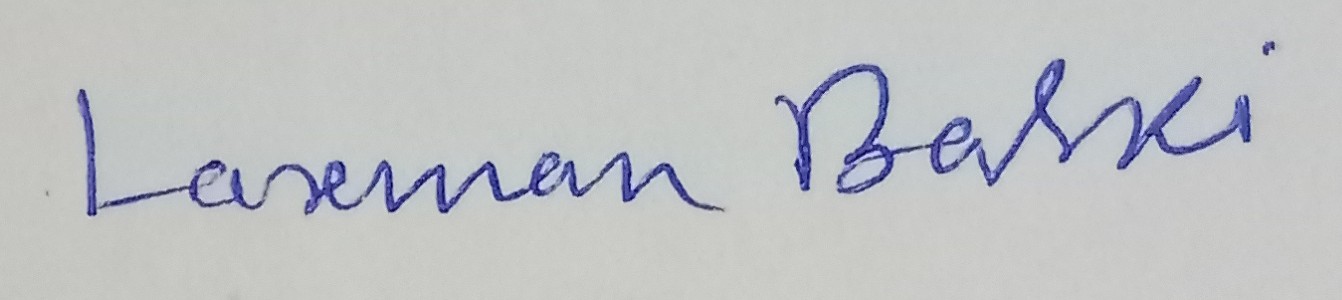 Laxman Baski